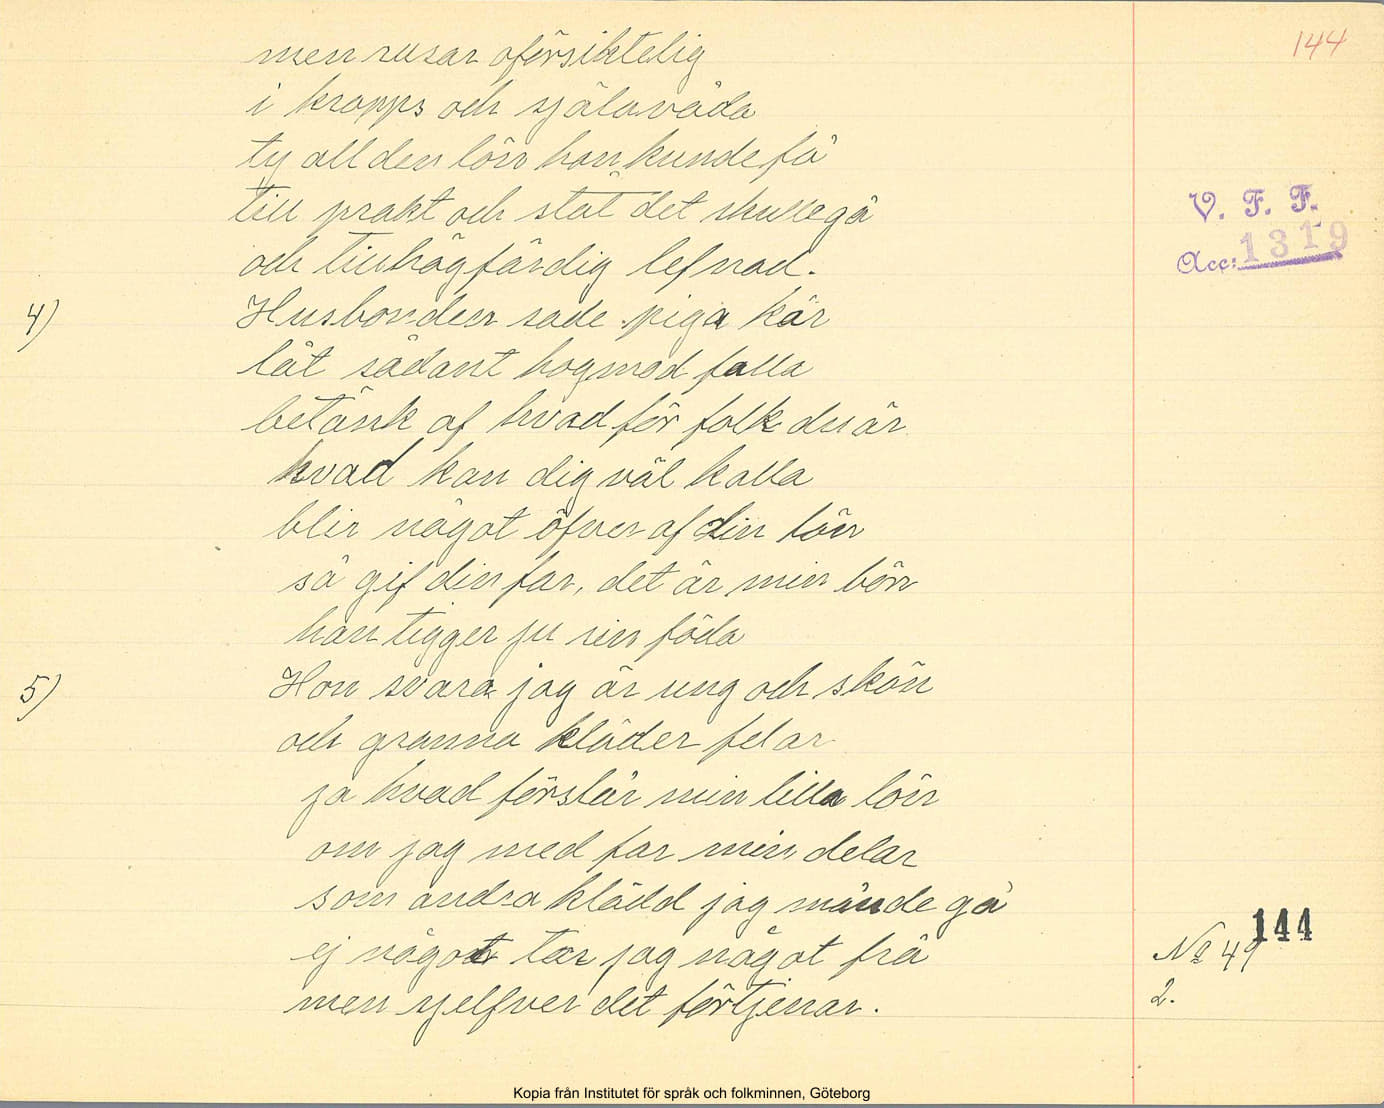 144
men rusar oförsiktelig
i kropps och själavåda
ty all den lön hon kunde få
till prakt och ståt det skulle gå
och till högfärdig lefnad.
V. F. F.
Acc: 1319
4) Husbonden sade piga kär
låt sådant hogmod falla
betänk af hvad för folk du är
hvad kan dig väl kalla
blir något öfver af din lön
så gif din far, det är min bön
han tigger ju sin föda
5) Hon svara jag är ung och skön
och granna kläder felar
ja hvad förslår min lilla lön
om jag med far min delar
som andra klädd jag månde gå
ej någon tar jag något frå
men sjelfver det förtjenar.
144
No 49
2.
Kopia från Institutet för språk och folkminnen, Göteborg